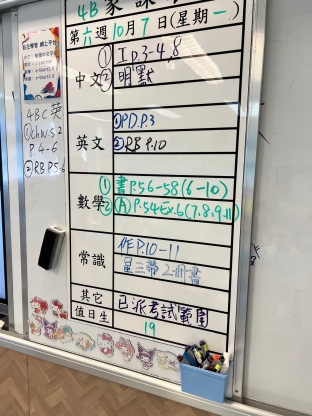 4B 家課
第六週10月7日(星期一)
中文
① I p.3-4,8
② 明默
英文
① PD.P.3
② RB P.10
數學
① 書 P.56-58 (6-10)
② Ⓐ P.54 Ex.6 (7,8,9,11)
常識
作P.10-11
星三帶2冊書
其它
已派考試範圍
值日生
19
4BC 英
P 4-6
② RB P.5-6